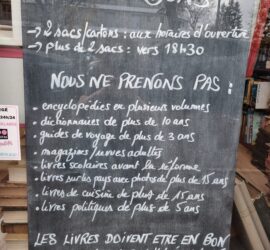 DONS
→ 2 sacs/cartons : aux horaires d'ouverture
→ plus de 2 sacs : vers 18h30
NOUS NE PRENONS PAS :
• encyclopédies en plusieurs volumes
• dictionnaires de plus de 10 ans
• guides de voyage de plus de 3 ans
• magazines/revues adultes
• livres scolaires avant la réforme
• livres sur les pays avec photos de plus de 15 ans
• livres de cuisine de plus de 15 ans
• livres politiques de plus de 5 ans
LES LIVRES DOIVENT ETRE EN BON